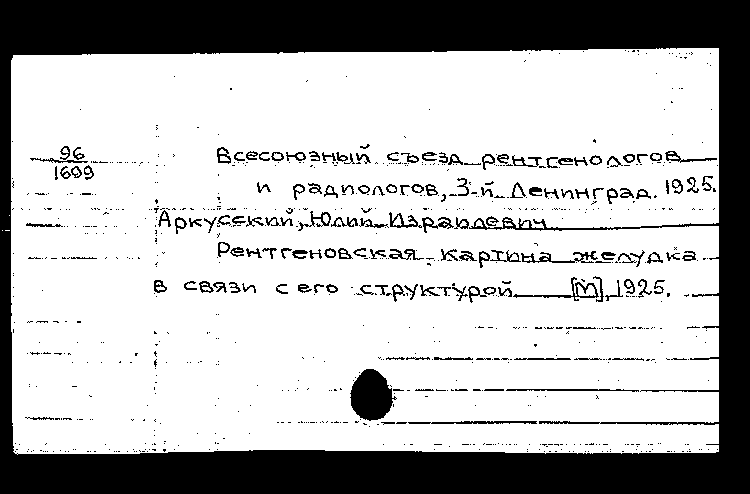 96
1609
Всесоюзный съезд рентгенологов
и радиологов, 3-й. Ленинград. 1925.
Аркусский, Юлий Израилевич
Рентгеновская картина желудка
в связи с его структурой [М], 1925.